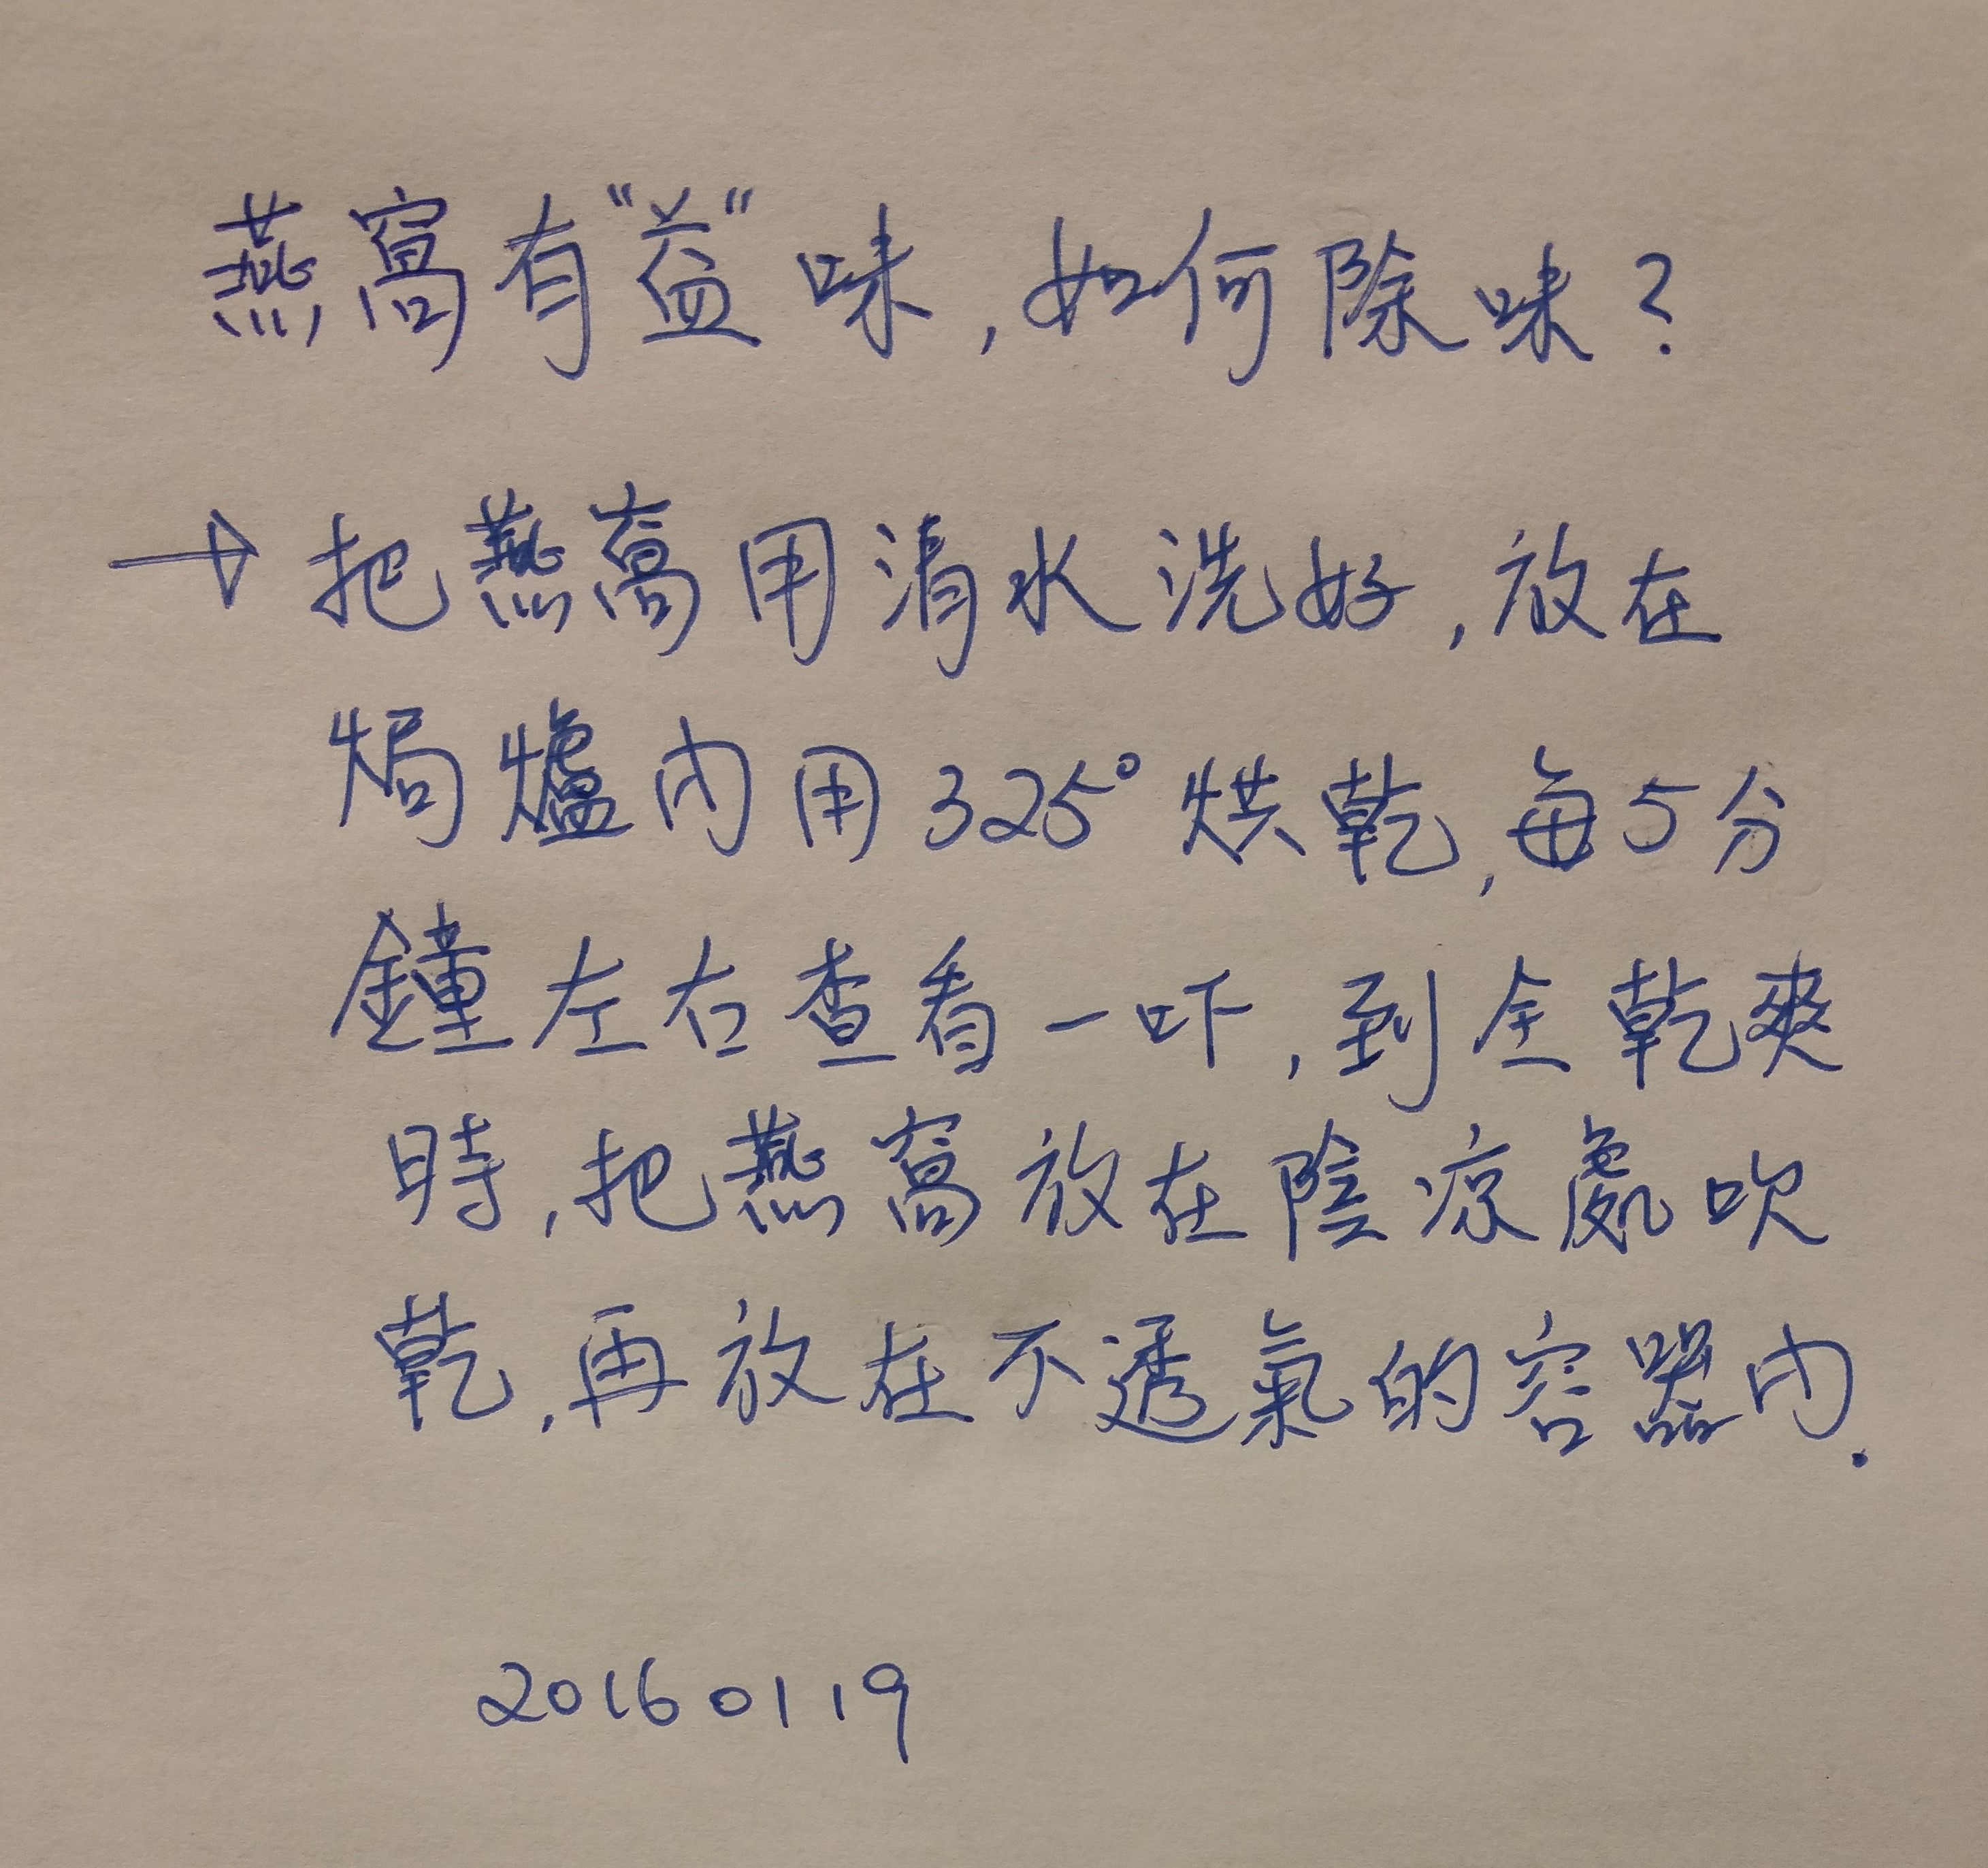 燕窩有"益"味,如何除味?
→ 把燕窩用清水洗好,放在
焗爐內用325°烘乾,每5分
鐘左右查看一吓,到全乾爽
時,把燕窩放在陰涼處吹
乾,再放在不透氣的容器內.
20160119